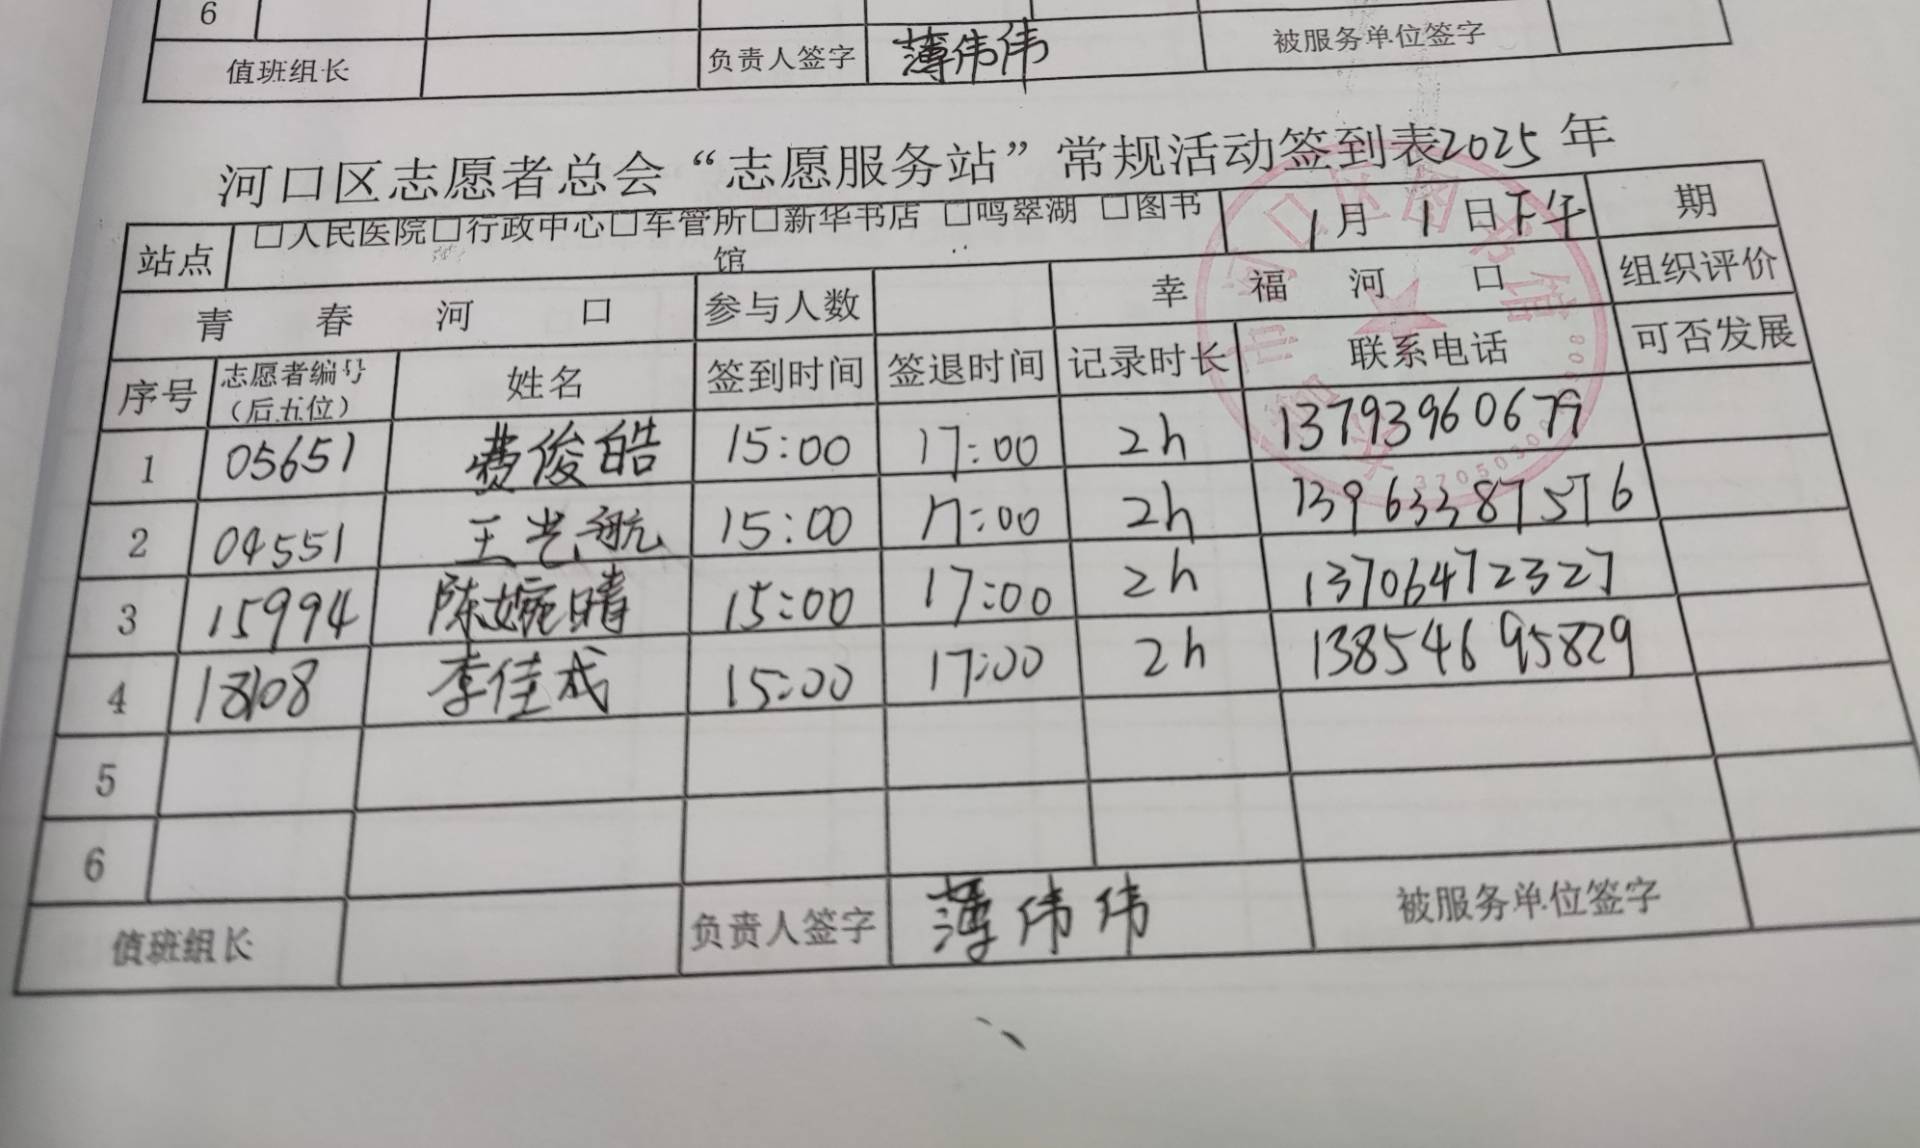 6
值班组长 负责人签字 薄伟伟 被服务单位签字
河口区志愿者总会“志愿服务站”常规活动签到表2025年
站点 □人民医院□行政中心□车管所□新华书店 □鸣翠湖 □图书馆 1月1日下午 期
青春河口 参与人数 幸福河口 组织评价
序号 志愿者编号（后五位） 姓名 签到时间 签退时间 记录时长 联系电话 可否发展
1 05651 费俊皓 15:00 17:00 2h 13793960679
2 04551 王艺航 15:00 17:00 2h 13963387576
3 15994 陈婉晴 15:00 17:00 2h 13706472327
4 18108 李佳成 15:00 17:00 2h 13854695829
5
6
值班组长 负责人签字 薄伟伟 被服务单位签字